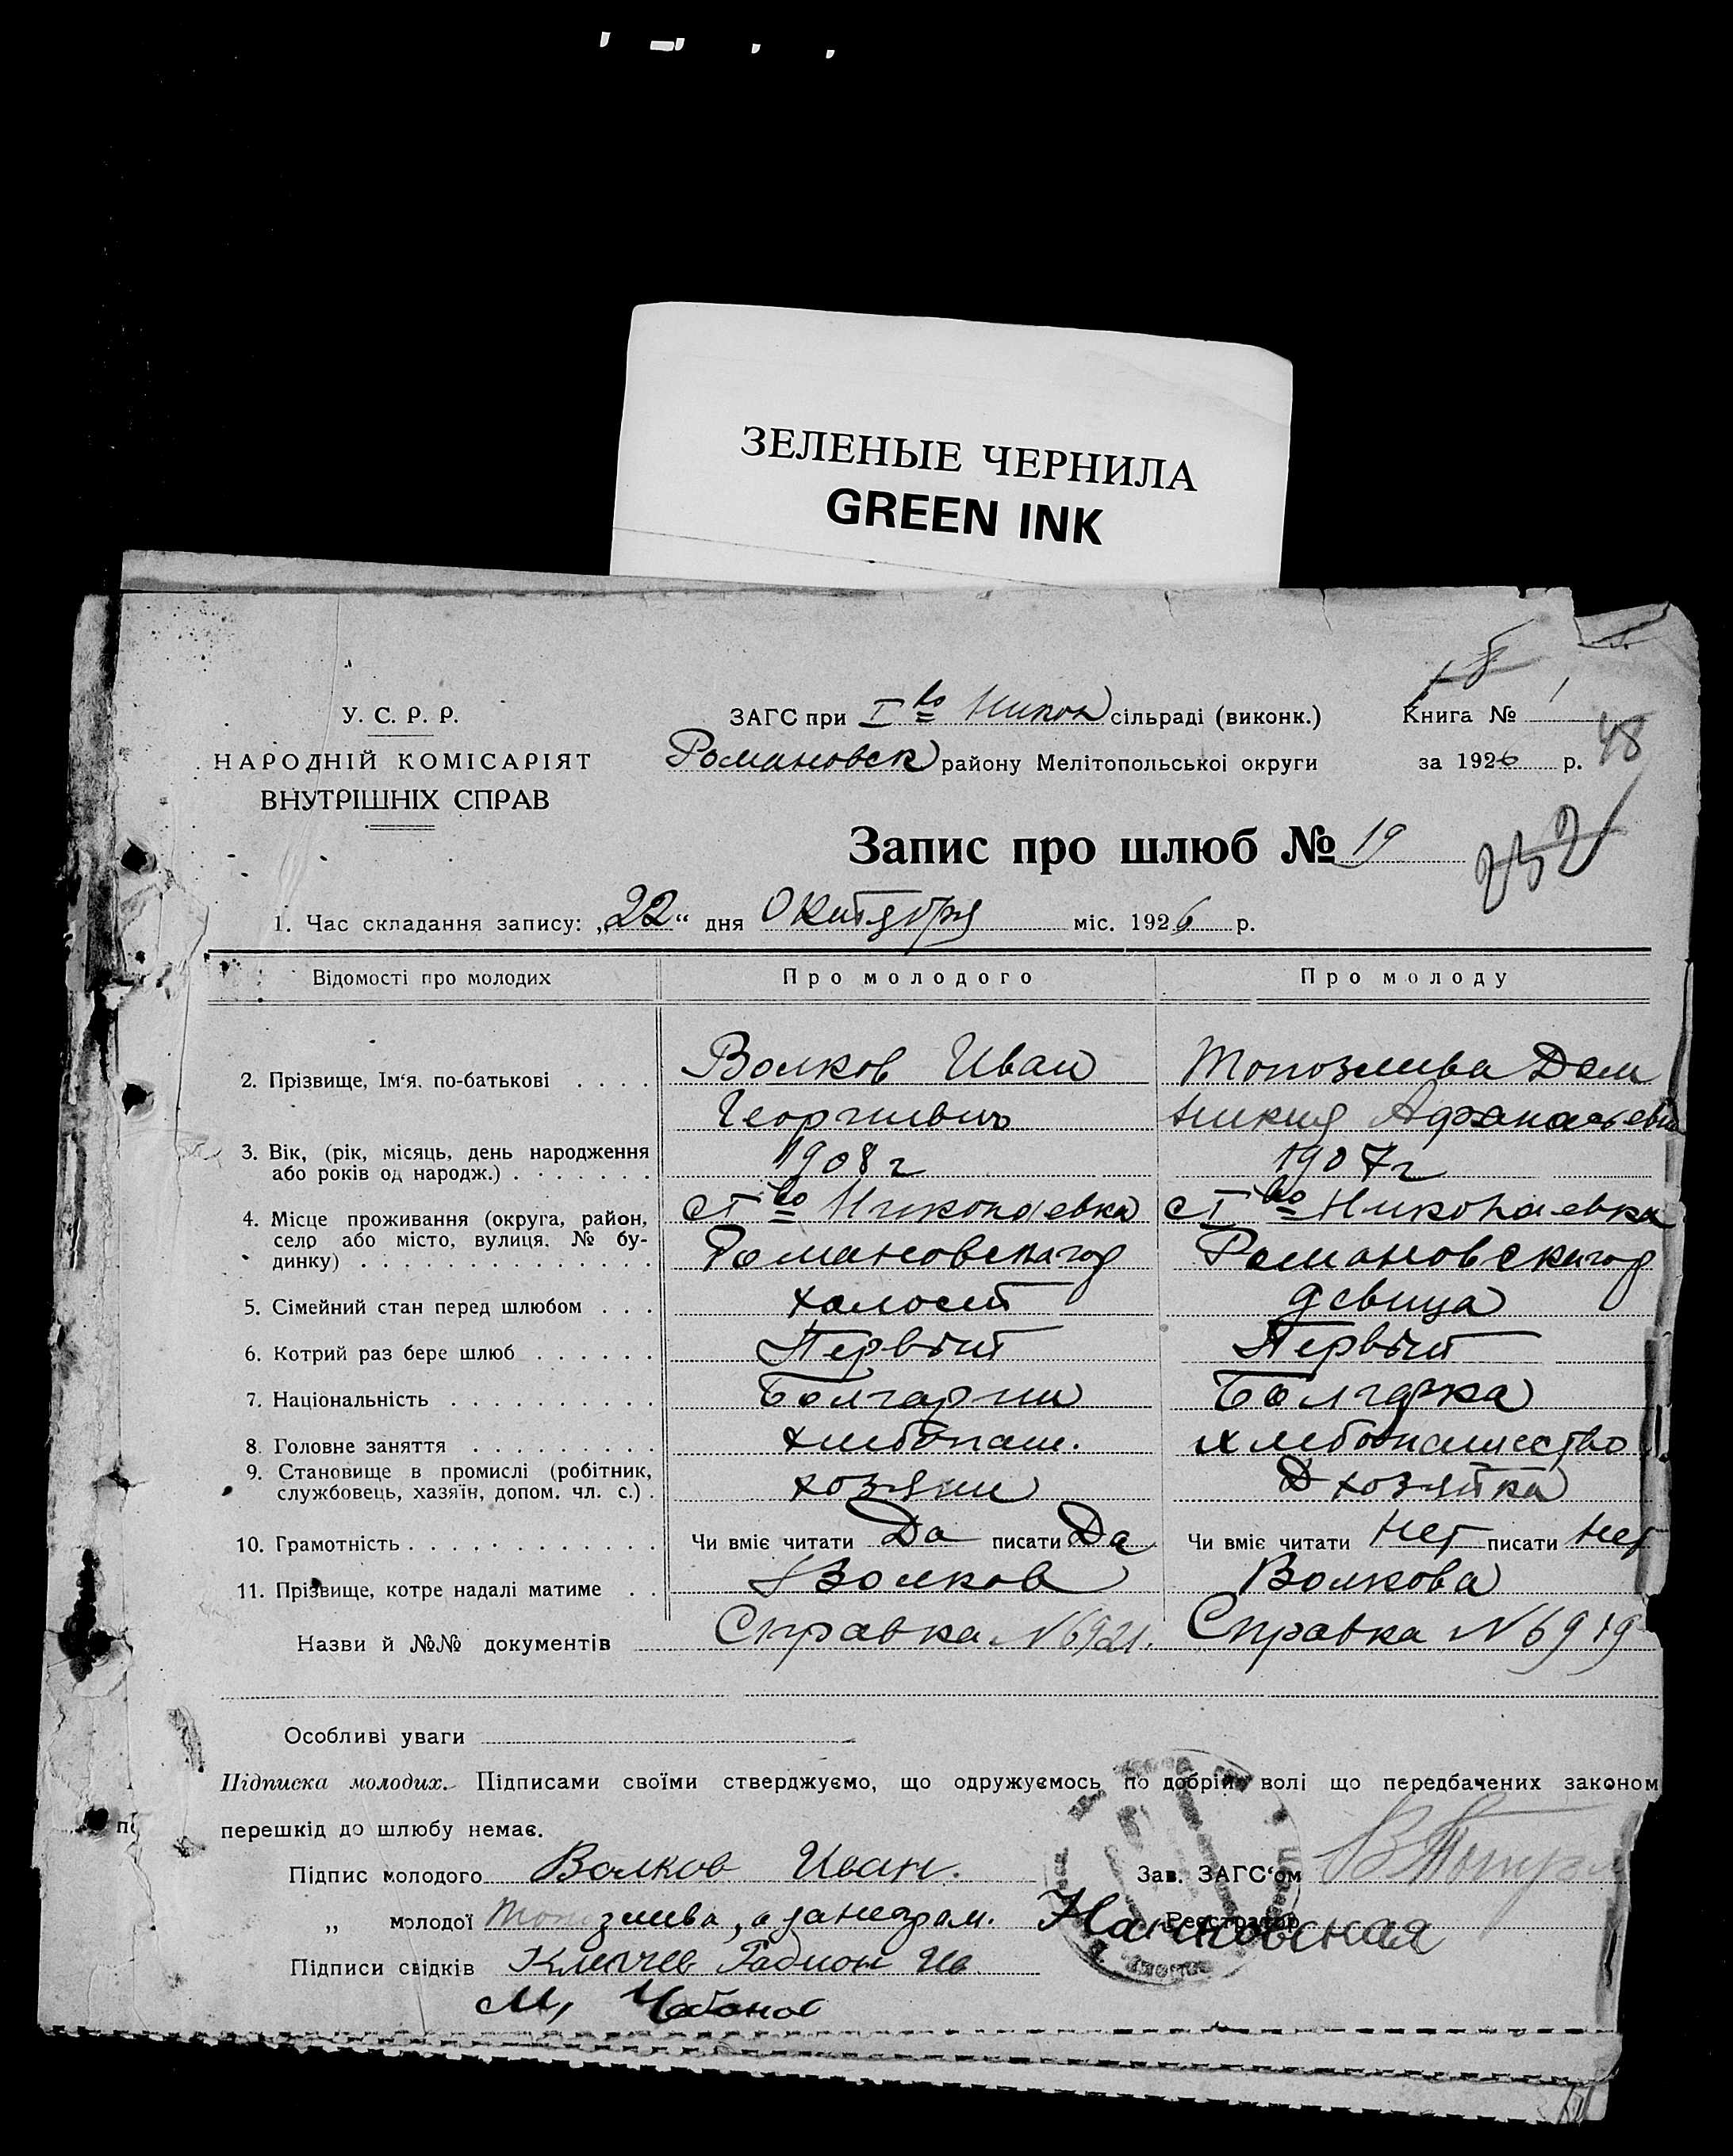 ЗЕЛЕНЫЕ ЧЕРНИЛА
GREEN INK
У. С. Р. Р.
НАРОДНІЙ КОМІСАРІЯТ
ВНУТРІШНІХ СПРАВ
ЗАГС при I во Никол сільраді (виконк.)
Романовск району Мелітопольської округи
Книга № 1
за 1926 р.
48
Запис про шлюб № 19
232
1. Час складання запису: „22“ дня Октября міс. 1926 р.
Відомості про молодих Про молодого Про молоду
2. Прізвище, Ім'я, по-батькові . . . . Волков Иван Топозлива Дом
Георгиевич никия Афанасьев
3. Вік, (рік, місяць, день народження
або років од народж.) . . . . . . . 1908 г 1907 г
4. Місце проживання (округа, район, с I во Николаевка с I во Николаевка
село або місто, вулиця, № бу-
динку) . . . . . . . . . . . . . . Романовского Романовского
5. Сімейний стан перед шлюбом . . . холост девица
6. Котрий раз бере шлюб . . . . . . Первый Первый
7. Національність . . . . . . . . . . Болгарин Болгарка
8. Головне заняття . . . . . . . . . хлебопаш. хлебопашество
9. Становище в промислі (робітник,
службовець, хазяїн, допом. чл. с.) . хозяин Д хозяйка
10. Грамотність . . . . . . . . . . . . Чи вміє читати Да писати Да Чи вміє читати Нет писати Нет
11. Прізвище, котре надалі матиме . . Волков Волкова
Назви й №№ документів Справка №6921. Справка №6919
Особливі уваги
Підписка молодих. Підписами своїми стверджуємо, що одружуємось по добрій волі що передбачених законом
перешкід до шлюбу немає.
Підпис молодого Волков Иван. Зав. ЗАГС'ом
„ молодої Топозлива, а за неграм. Реєстратор
Підписи свідків Клепчев Радион Ив
М, Чабанов